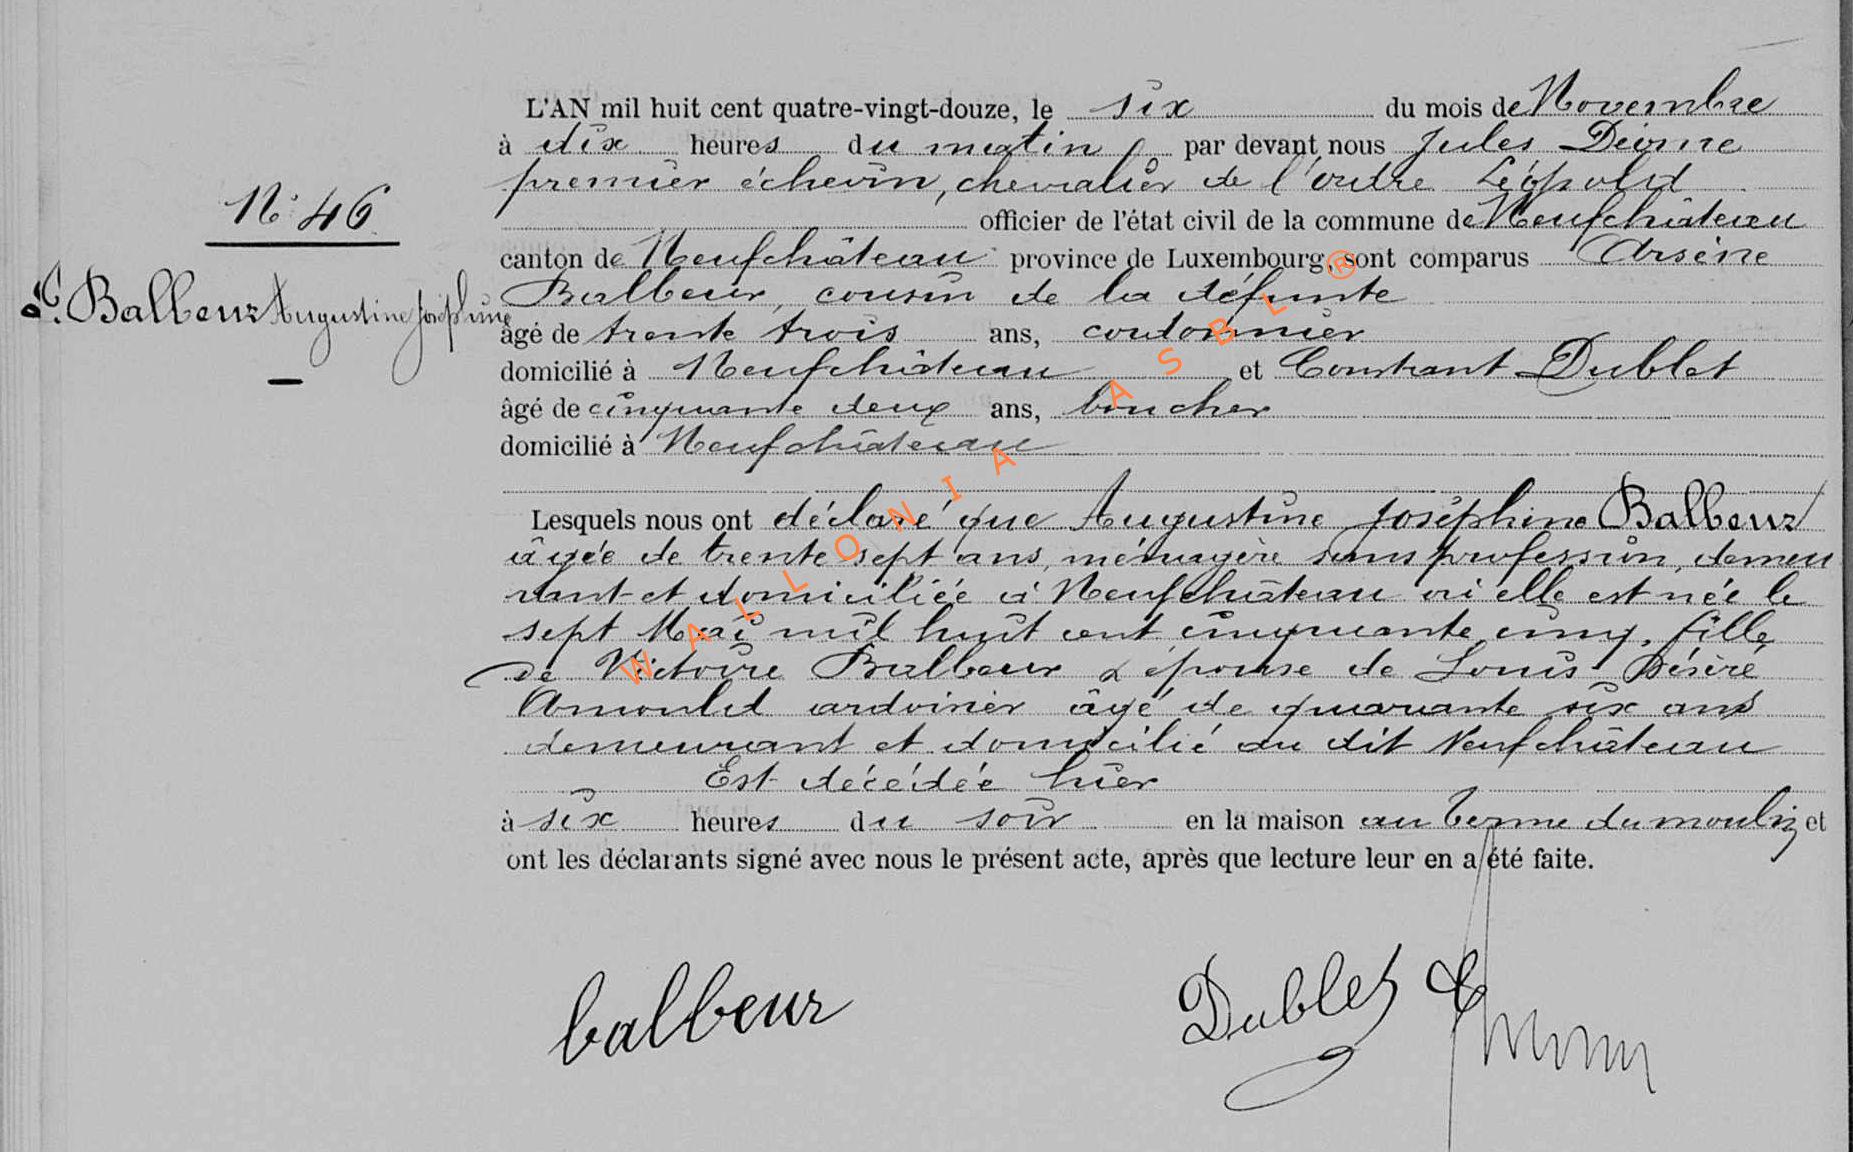 L'AN mil huit cent quatre-vingt-douze, le six du mois de Novembre
à dix heures du matin par devant nous Jules
premier échevin, chevalier de l'ordre Léopold
N° 46
officier de l'état civil de la commune de Neufchâteau
canton de Neufchâteau province de Luxembourg, sont comparus Arsène
Balbeur, cousin de la défunte
Balbeur Augustine Joséphine
âgé de trente trois ans, cordonnier
domicilié à Neufchâteau et Constant Dublet
âgé de cinquante deux ans, boucher
domicilié à Neufchâteau
Lesquels nous ont déclaré que Augustine Joséphine Balbeur
âgée de trente sept ans, ménagère sans profession, demeu
rant et domiciliée à Neufchâteau où elle est née le
sept Mai mil huit cent cinquante cinq, fille
de Victoire Balbeur & épouse de Louis Désiré
Arnould ardoisier âgé de quarante six ans
demeurant et domicilié au dit Neufchâteau
Est décédée hier
à six heures du soir en la maison au terme du moulin et
ont les déclarants signé avec nous le présent acte, après que lecture leur en a été faite.
balbeur Dublet
WALLONIA ASBL ®